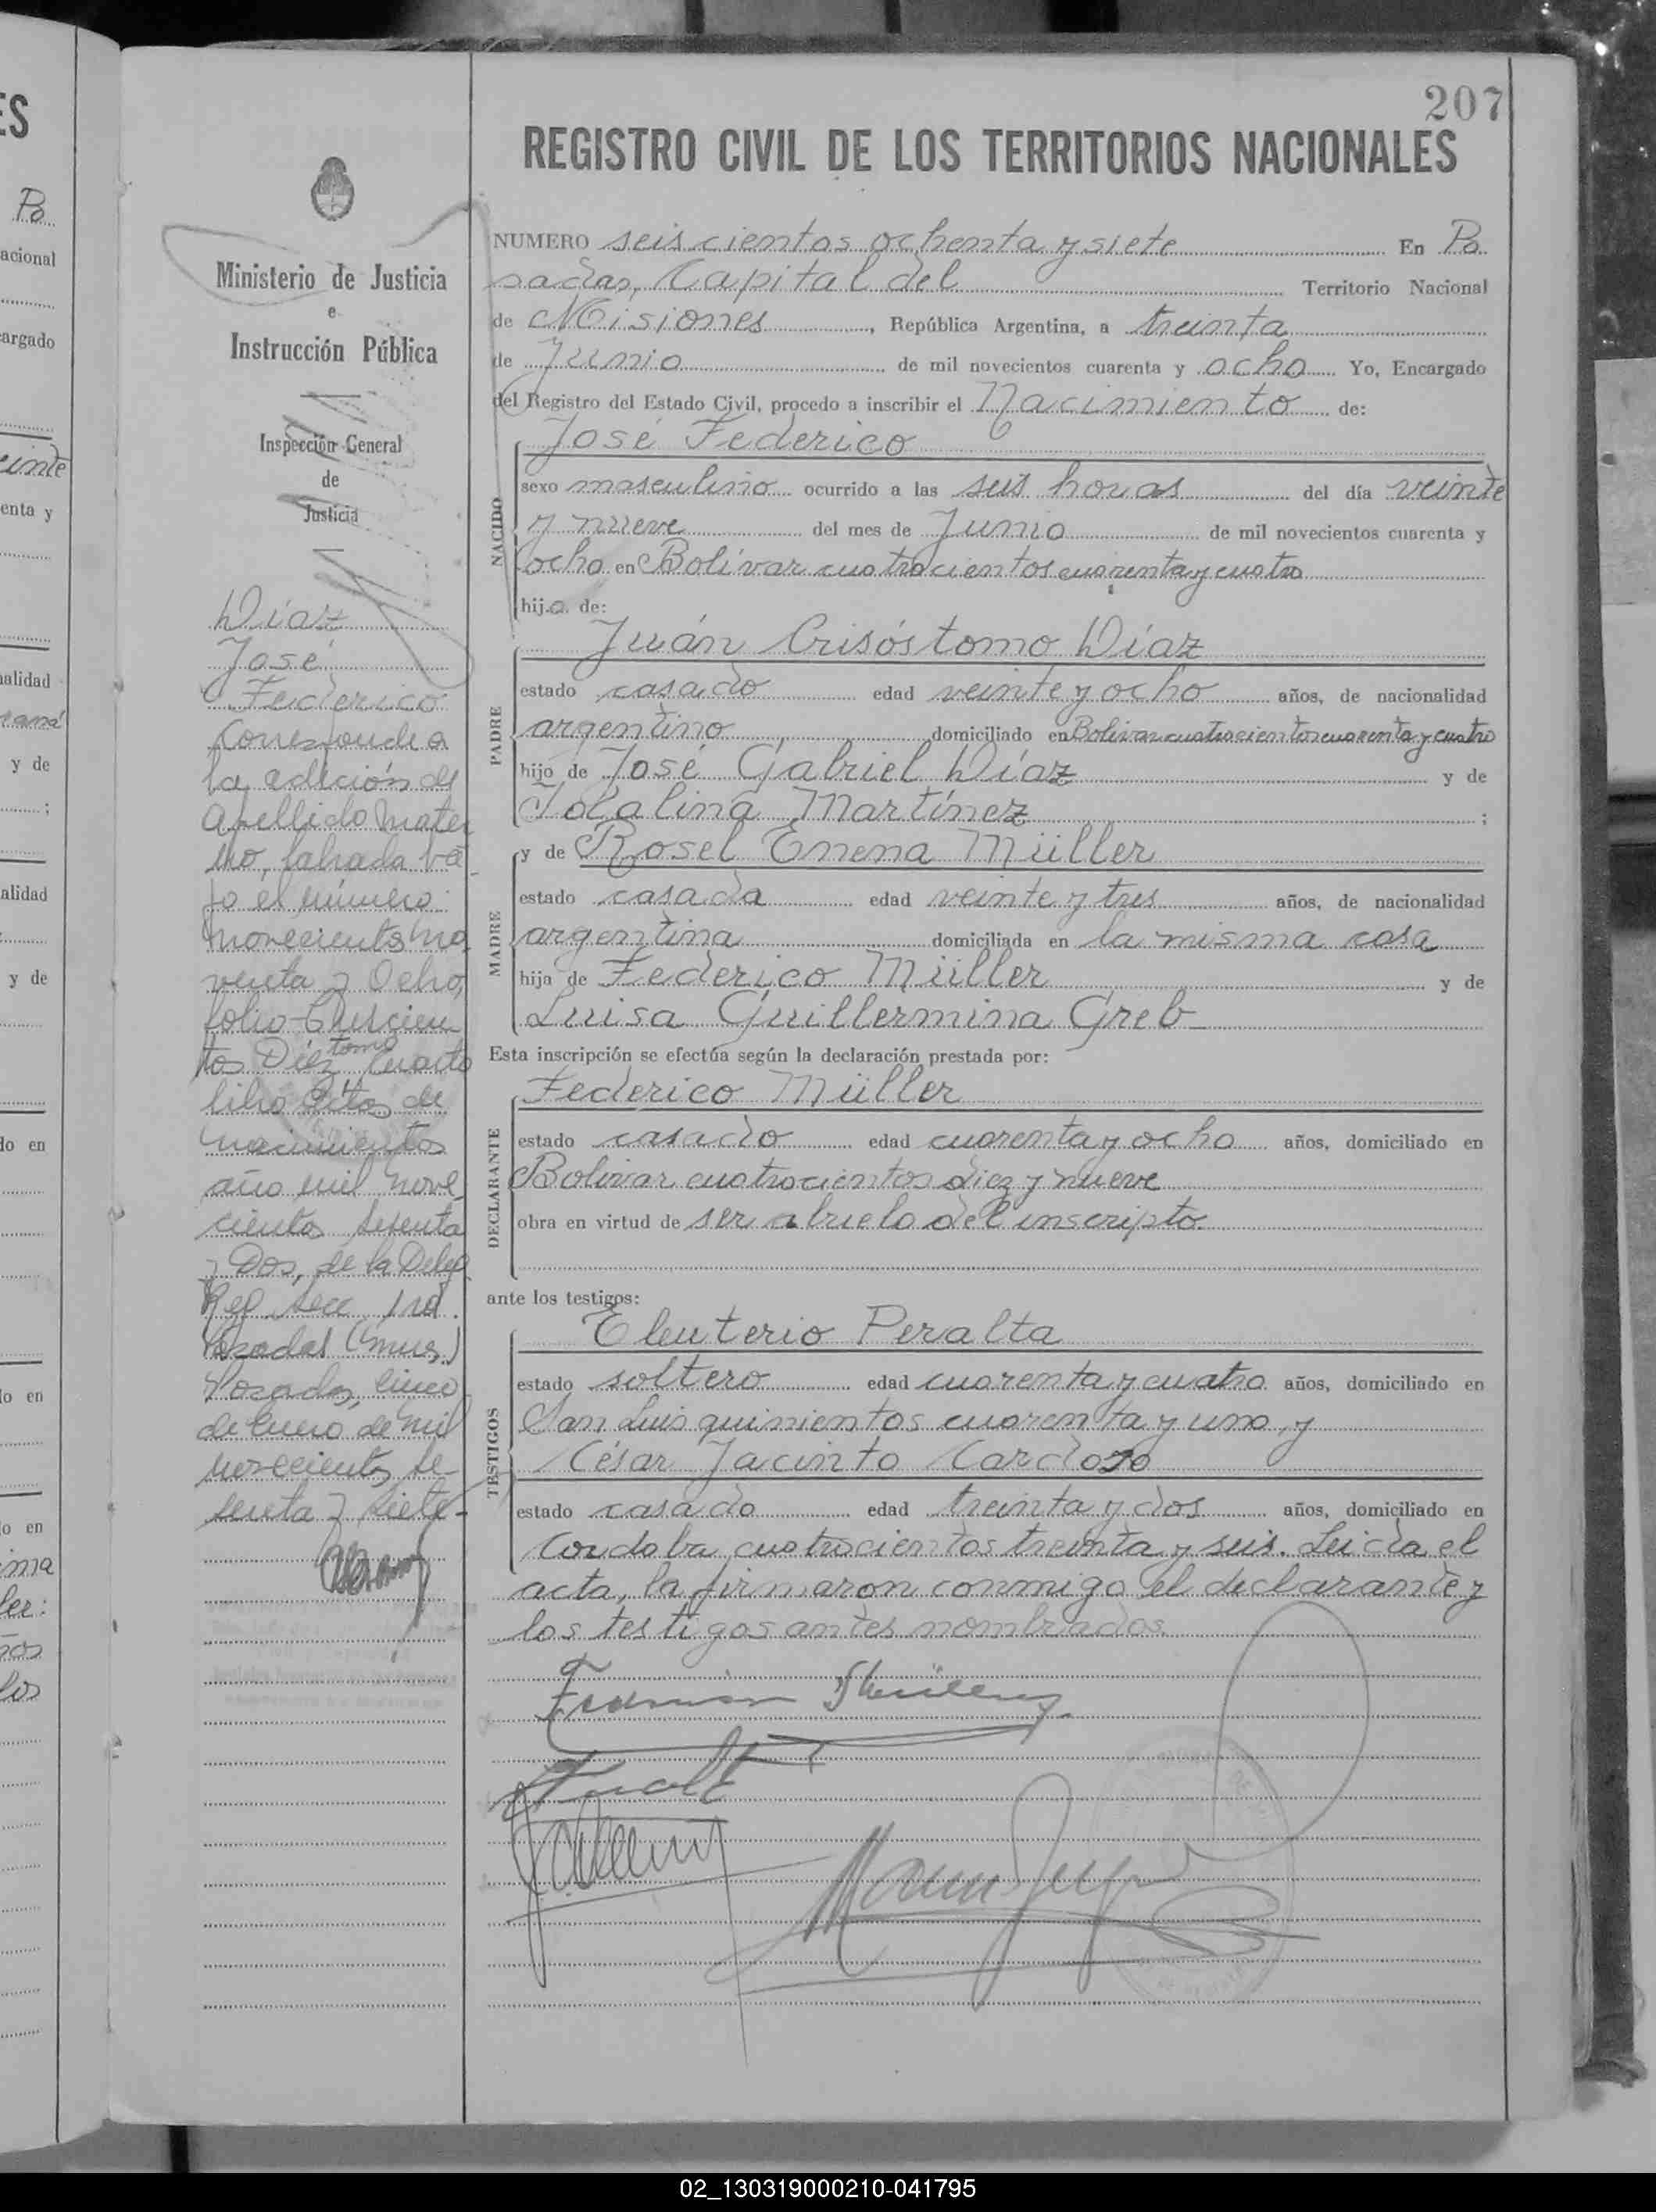 207
REGISTRO CIVIL DE LOS TERRITORIOS NACIONALES
Ministerio de Justicia
e
Instrucción Pública
Inspección General
de
Justicia
Díaz
José
Federico
Corresponde a
la adición del
apellido mater
no, labrada ba
jo el número
novecientos no
venta y Ocho,
folio Trescien
tos Diez tomo Cuarto
libro Actas de
nacimientos
año mil nove
cientos sesenta
y Dos, de la Deleg
Reg Secc 1ra
Posadas (mnes.)
Posadas, cinco
de Enero de mil
novecientos se
senta y siete-
NUMERO seiscientos ochenta y siete En Po
sadas, Capital del Territorio Nacional
de Misiones, República Argentina, a treinta
de Junio de mil novecientos cuarenta y ocho Yo, Encargado
del Registro del Estado Civil, procedo a inscribir el Nacimiento de:
NACIDO
José Federico
sexo masculino ocurrido a las seis horas del día veinte
y nueve del mes de Junio de mil novecientos cuarenta y
ocho en Bolívar cuatrocientos cuarenta y cuatro
hijo de:
PADRE
Juán Crisóstomo Díaz
estado casado edad veinte y ocho años, de nacionalidad
argentino domiciliado en Bolívar cuatrocientos cuarenta y cuatro
hijo de José Gabriel Díaz y de
Martínez;
MADRE
y de Rosel Enena Müller
estado casada edad veinte y tres años, de nacionalidad
argentina domiciliada en la misma casa
hija de Federico Müller y de
Luisa Guillermina Greb
Esta inscripción se efectúa según la declaración prestada por:
DECLARANTE
Federico Müller
estado casado edad cuarenta y ocho años, domiciliado en
Bolívar cuatrocientos diez y nueve
obra en virtud de ser abuelo del inscripto
ante los testigos:
TESTIGOS
Eleuterio Peralta
estado soltero edad cuarenta y cuatro años, domiciliado en
San Luis quinientos cuarenta y uno, y
César Jacinto Cardozo
estado casado edad treinta y dos años, domiciliado en
Cordoba cuatrocientos treinta y seis. Leida el
acta, la firmaron conmigo el declarante y
los testigos antes nombrados.
02_130319000210-041795